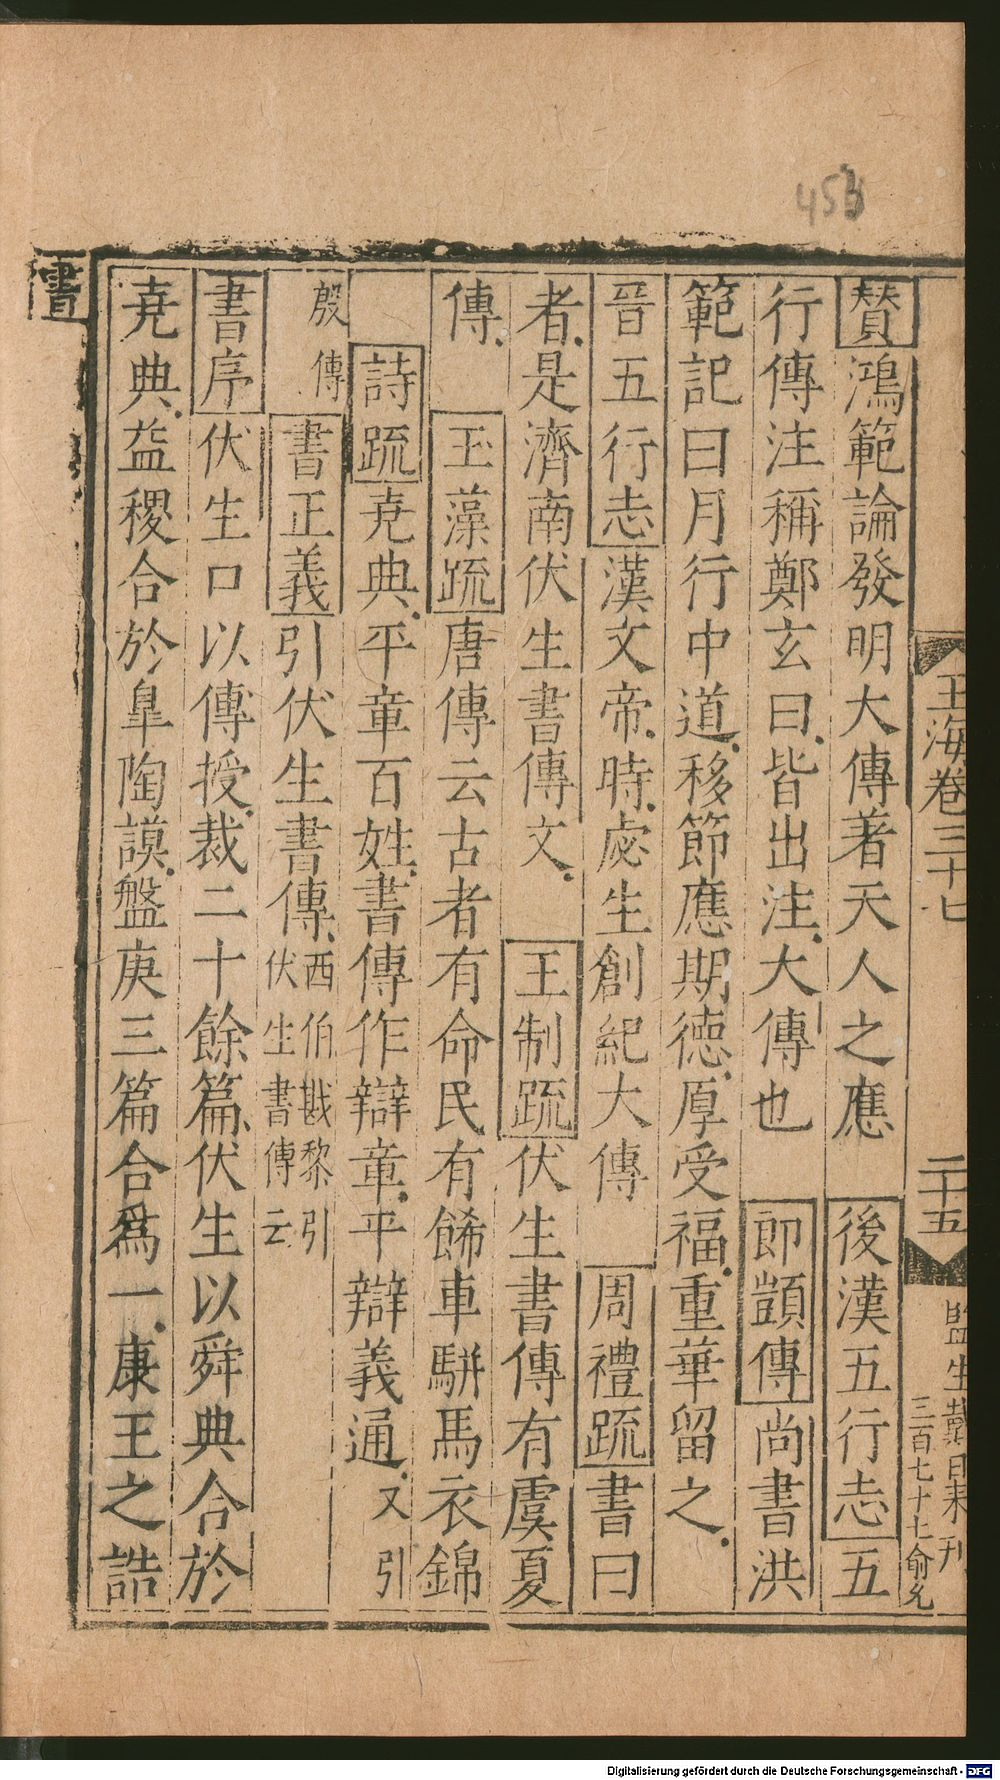 453
玉海卷三十七
二十五
監生戴日耒刋
三百七十七俞允
贊鴻範論發明大傳著天人之應 後漢五行志五
行傳注稱鄭玄曰皆出注大傳也 郎顗傳尚書洪
範記曰月行中道移節應期德厚受福重華留之
晉五行志漢文帝時虙生創紀大傳 周禮疏書曰
者是濟南伏生書傳文 王制疏伏生書傳有虞夏
傳 玉藻疏唐傳云古者有命民有餙車駢馬衣錦
詩疏堯典平章百姓書傳作辯章平辯義通又引
殷傳 書正義引伏生書傳西伯戡黎引伏生書傳云
書序伏生口以傳授裁二十餘篇伏生以舜典合於
堯典益稷合於臯陶謨盤庚三篇合爲一康王之誥
書
Digitalisierung gefördert durch die Deutsche Forschungsgemeinschaft - DFG